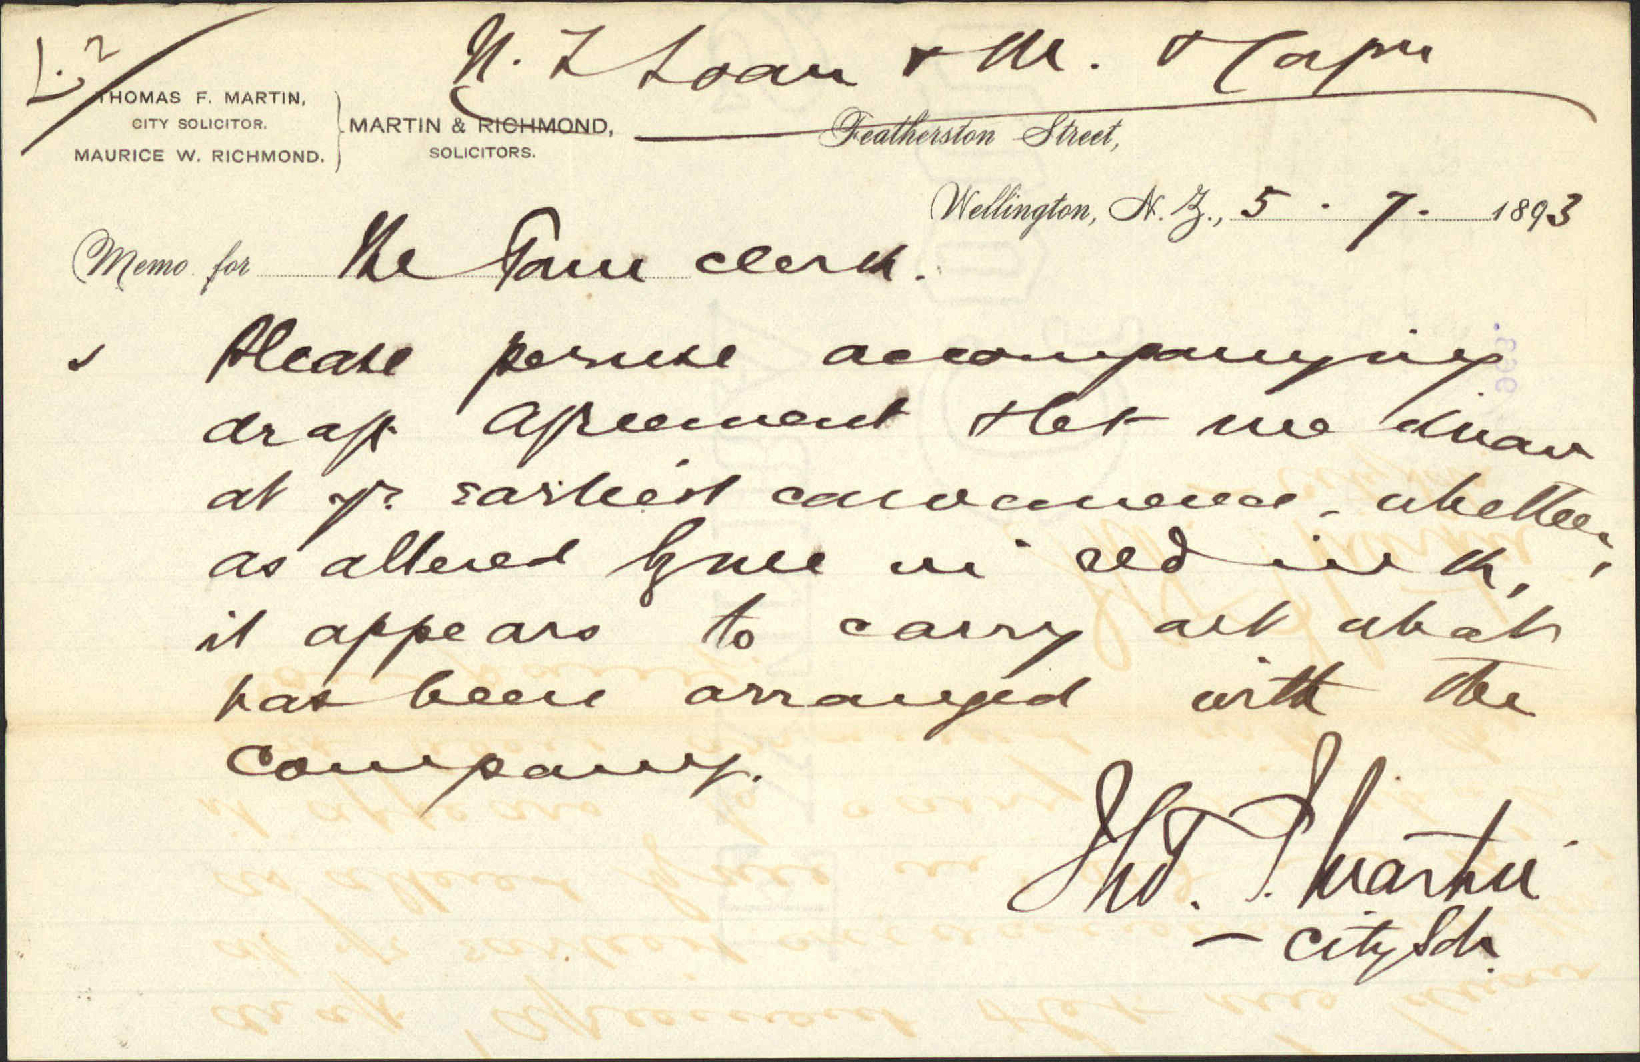 N. Z Loan & M. A Coy re
THOMAS F. MARTIN,
CITY SOLICITOR.
MAURICE W. RICHMOND.
MARTIN & RICHMOND,
SOLICITORS.
Featherston Street,
Wellington, N.Z., 5 . 7. 1893
Memo for The Town Clerk.
Please peruse accompanying
draft Agreement & let me know
at yr. earliest convenience, whether,
as altered by me in red ink,
it appears to carry out what
has been arranged with the
Company.
Tho. F. Martin
— City Solr.